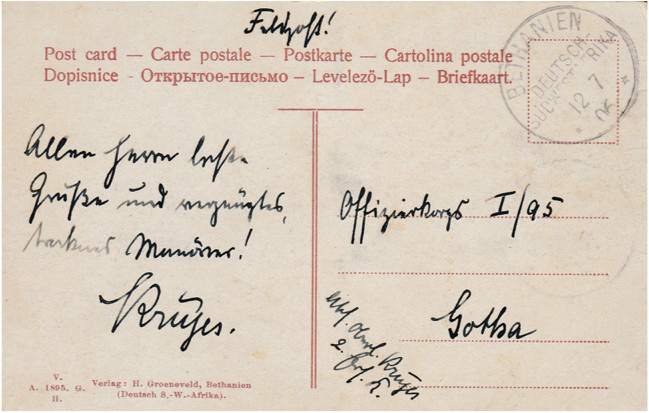 Feldpost!
Post card — Carte postale — Postkarte — Cartolina postale
Dopisnice - Открытое-письмо — Levelező-Lap — Briefkaart.
BETHANIEN
DEUTSCH-
SÜDWESTAFRIKA
12 7
06
Allen Herrn beste
Grüße und vergnügtes,
trockenes Manöver!
Krüger.
Offizierkorps I/95
Gotha
Abs. Krüger
2.
V.
A. 1895. G.
H.
Verlag: H. Groeneveld, Bethanien
(Deutsch S.-W.-Afrika).